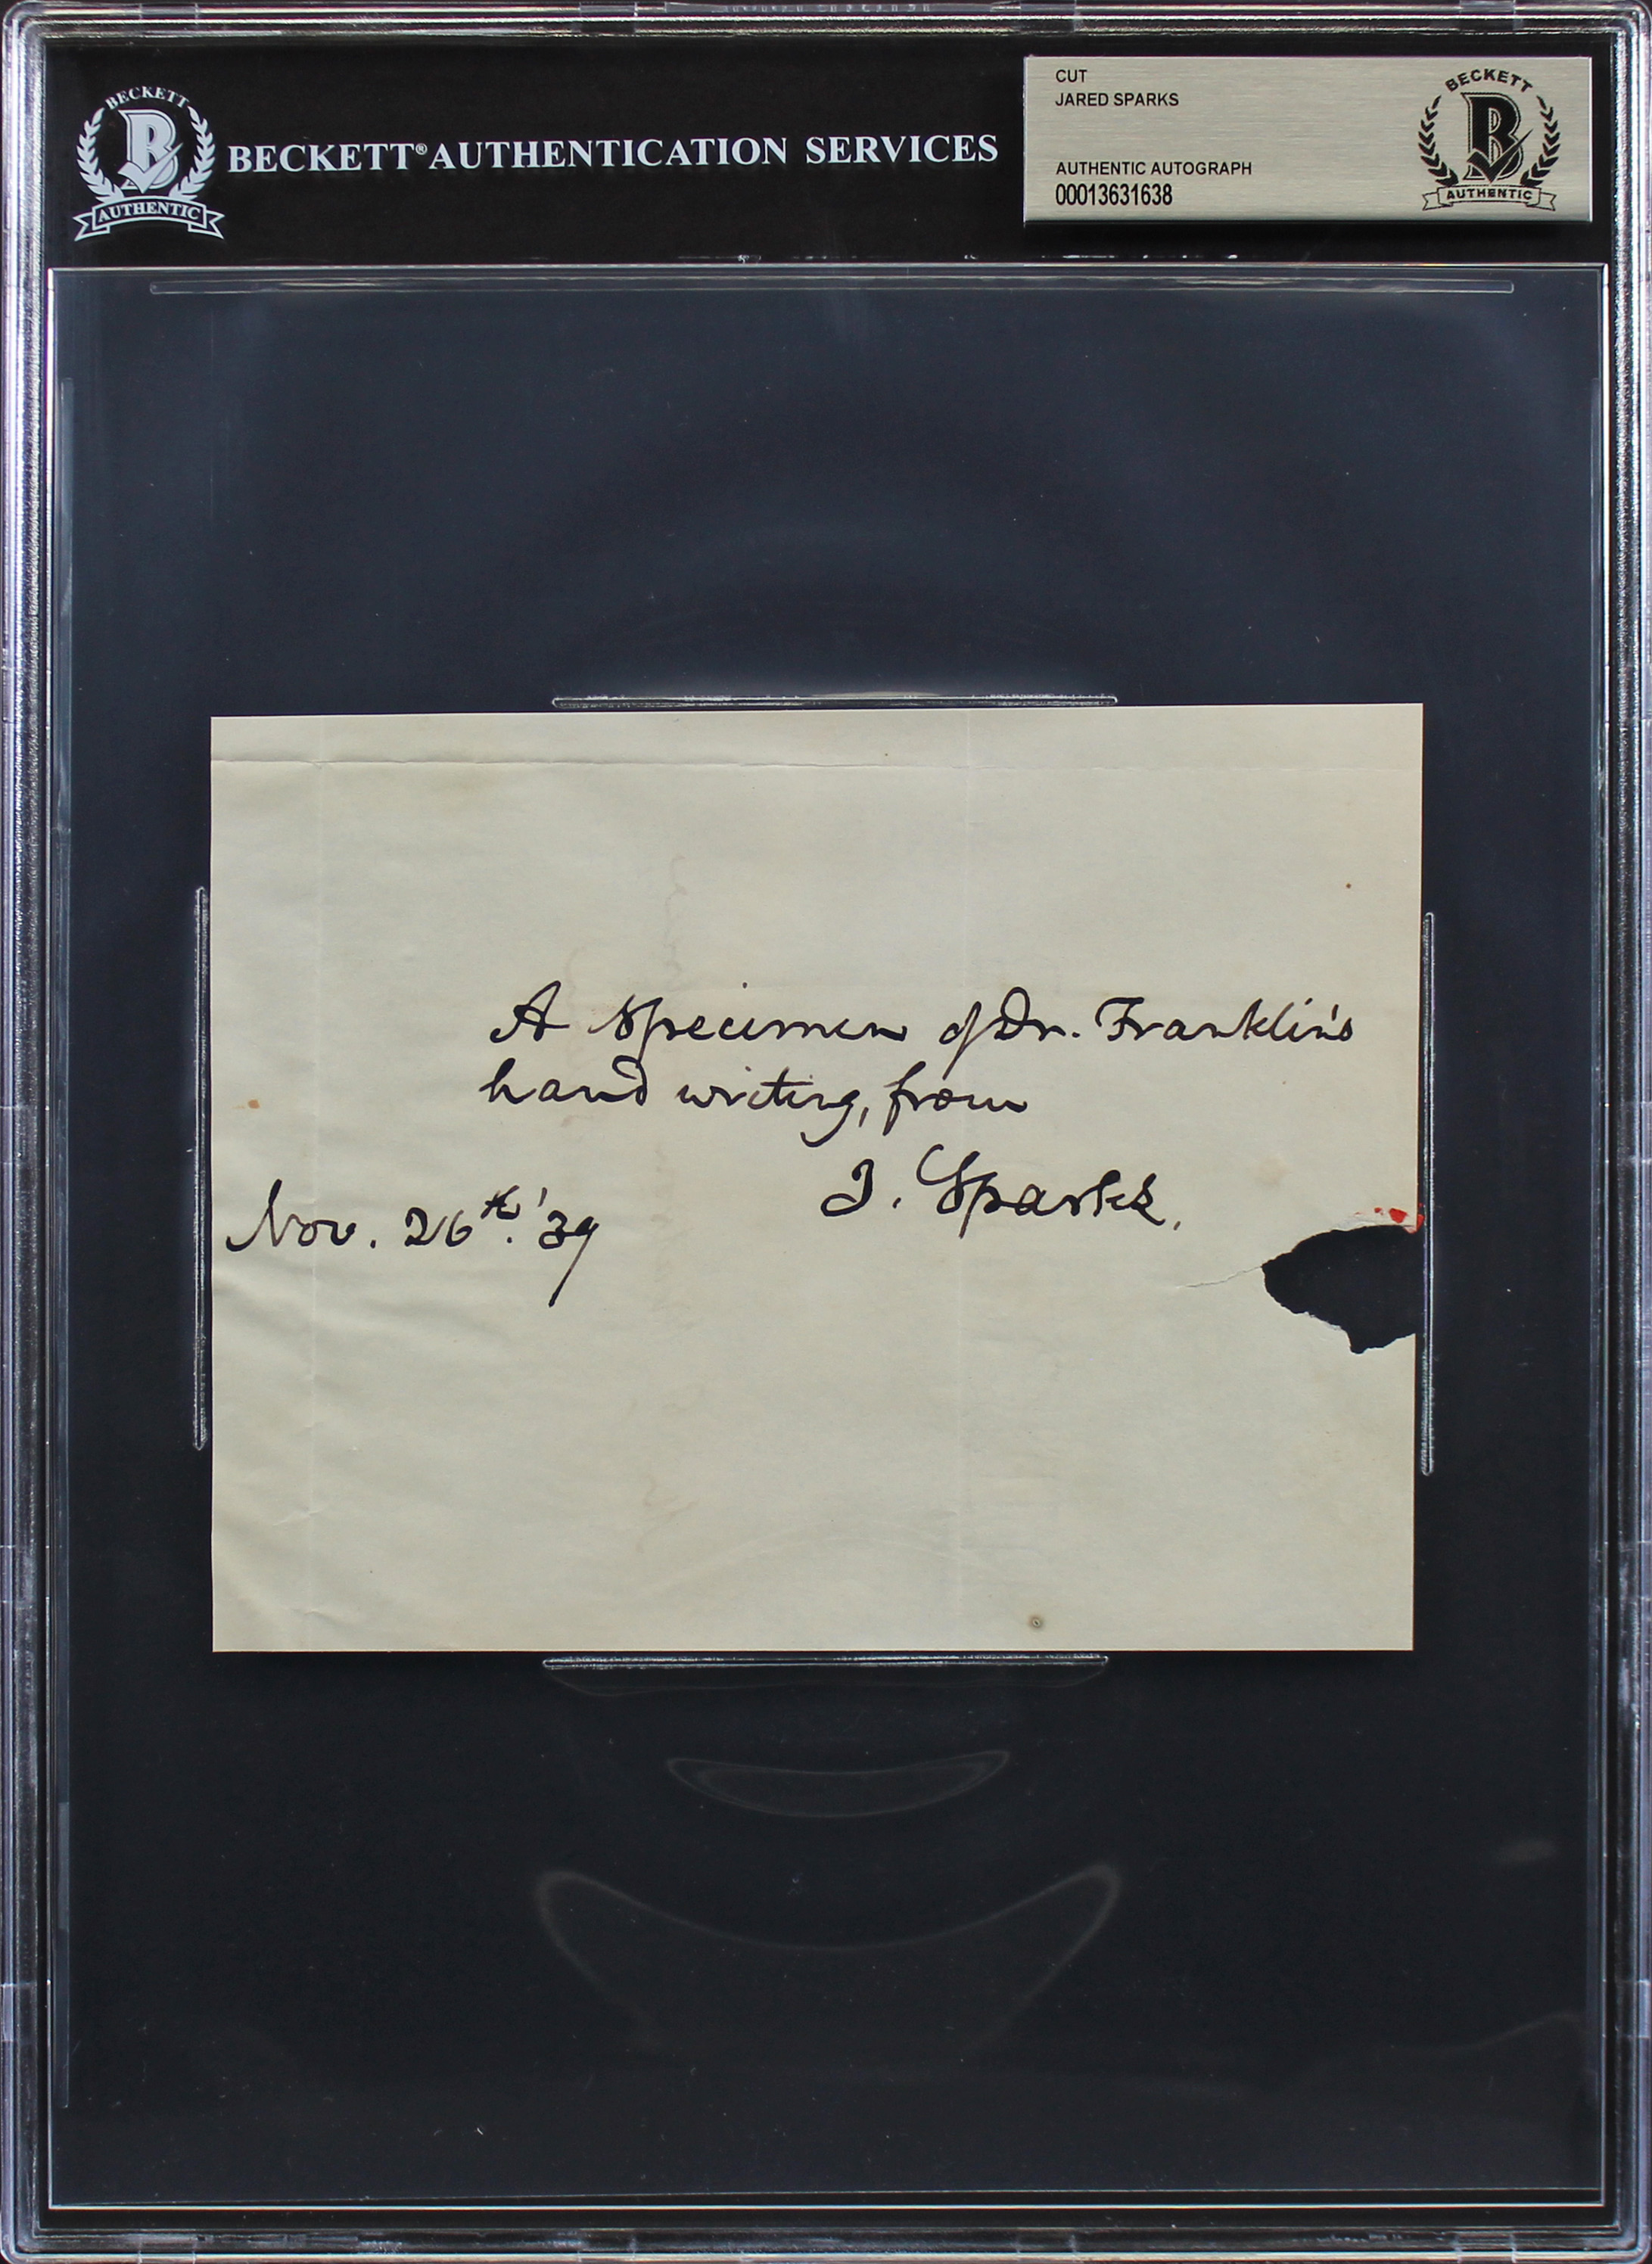 BECKETT
AUTHENTIC
BECKETT® AUTHENTICATION SERVICES
CUT
JARED SPARKS
AUTHENTIC AUTOGRAPH
00013631638
BECKETT
AUTHENTIC
A Specimen of Dr. Franklin's
hand writing, from
J. Sparks.
Nov. 26th. '39